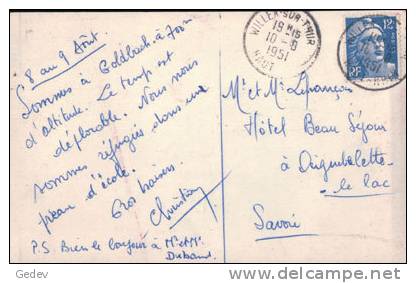 8 au 9 Août.
Sommes à Goldbach à 700m
d'altitude. Le temps est
déplorable. Nous nous
sommes réfugiés dans une
preau d'école.
Gros baisers.
Christian
P.S. Bien le bonjour à Mr et Mme
Duband.
WILLER-SUR-THUR
19 H15
10-8
1951
HAUT
12F
Mr et Mme
Hôtel Beau Séjour
à Aiguebelette-
le lac
Savoie
Gedev
©delcampe.net